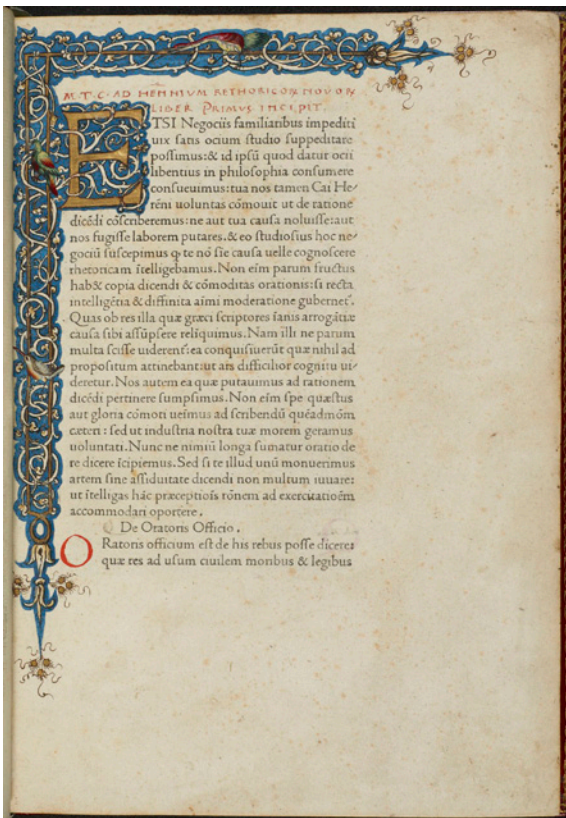 M.T.C. AD HEŕNIVM RETHORICOꝜ NOVOꝜ
LIBER PRIMVS INCIPIT.
ETSI Negociis familiaribus impediti
uix satis ocium studio suppeditare
possimus:& id ipsū quod datur ocii
libentius in philosophia consumere
consueuimus:tua nos tamen Cai He-
rēni uoluntas cōmouit ut de ratione
dicēdi cōscriberemus:ne aut tua causa noluisse:aut
nos fugisse laborem putares.& eo studiosius hoc ne-
gociū suscepimus ꝙ te nō sie causa uelle cognoscere
rhetoricam ītelligebamus.Non eīm parum fructus
hab& copia dicendi & cōmoditas orationis:si recta
intelligētia & diffinita aīmi moderatione gubernet᷑.
Quas ob res illa quæ græci scriptores īanis arrogātiæ
causa sibi assūpsere reliquimus. Nam illi ne parum
multa scisse uiderent᷑:ea conquisiuerūt quæ nihil ad
propositum attinebant:ut ars difficilior cognitu ui-
deretur. Nos autem ea quæ putauimus ad rationem
dicēdi pertinere sumpsimus. Non eīm spe quæstus
aut gloria cōmoti ueīmus ad scribendū quēadmōm
cæteri : sed ut industria nostra tuæ morem geramus
uoluntati. Nunc ne nimiū longa sumatur oratio de
re dicere īcipiemus. Sed si te illud unū monuerimus
artem sine assiduitate dicendi non multum iuuare:
ut ītelligas hāc præceptiōīs rōnem ad exercitatioēm
accommodari oportere.
De Oratoris Officio.
ORatoris officium est de his rebus posse dicere:
quæ res ad usum ciuilem moribus & legibus